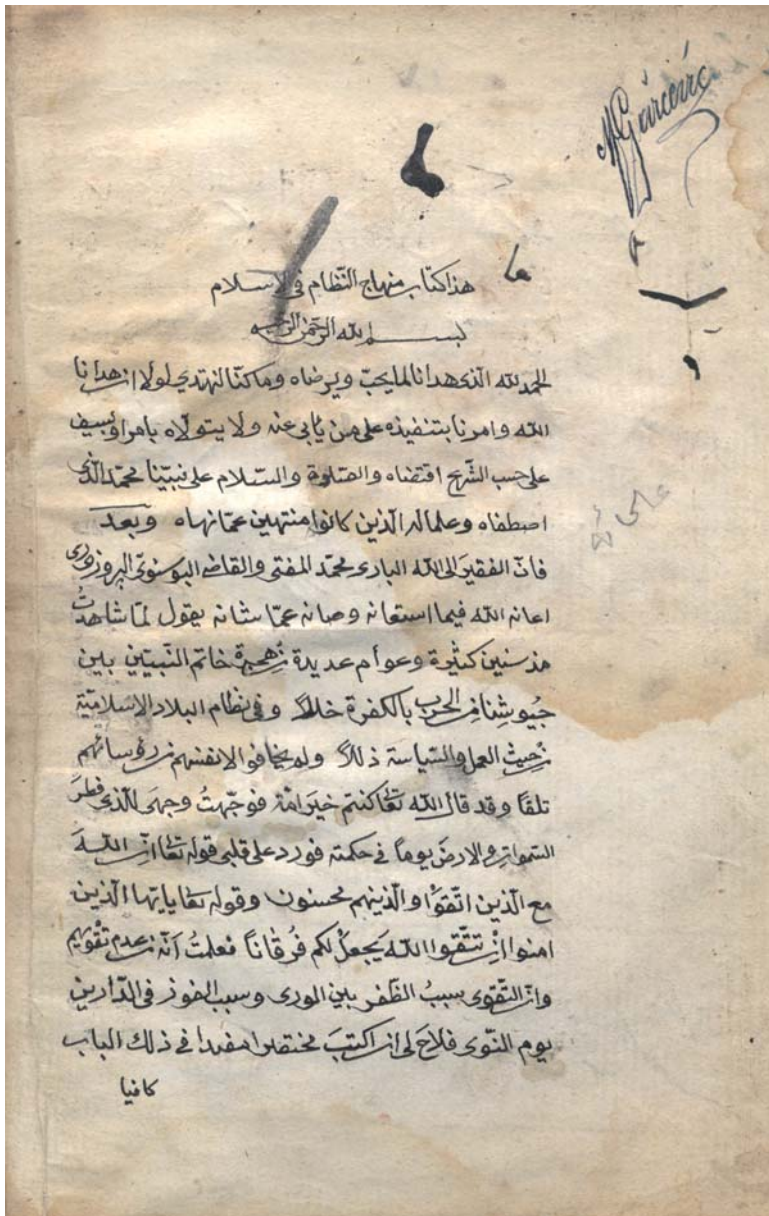 هذا كتاب منهاج النّظام فى الاسلام
بسم الله الرّحمن الرّحيم
الحمد لله الّذى هدانا لما يحبّ ويرضاه وما كنّا لنهتدي لولا ان هدانا
الله وامرنا بتنفيذه على من يأبى عنه ولا يتولاه بامر او بسيف
على حسب الشّرع اقتضاه والصّلوة والسّلام على نبيّنا محمّد الّذى
اصطفاه وعلى اله الّذين كانوا منتهين عمّا نهاه وبعد
فانّ الفقير الى الله البارى محمّد المفتى والقاضى البوسنوىّ
اعانه الله فيما استعانه وصانه عمّا شانه يقول لمّا شاهدتُ
مذ سنين كثيرة وعوام عديدة من هجرة خاتم النّبيّين بين
جيوشنا فى الحرب بالكفرة خللاً وفى نظام البلاد الاسلاميّة
من حيث العمل والسّياسة ذللاً ولم يخافوا لانفسهم من رؤسائهم
تلقًا وقد قال الله تعالى كنتم خيرَ امّة فوجّهتُ وجهىَ للّذى فطرَ
السّموات والارضَ يوماً فى حكمته فورد على قلبى قوله تعالى انّ اللهَ
مع الّذين اتّقوْا والّذينهم محسنون وقوله تعالى يايّها الّذين
امنوا انْ تتّقوا اللهَ يجعلْ لكم فُرقاناً فعلمتُ انّه من عدم تقويهم
وانّ التّقوى سببُ الظّفر بين الورى وسبب الفوز فى الدّارين
يوم التّوى فلاحَ لى ان اكتبَ مختصرا مفيدا فى ذلك الباب
كافيا